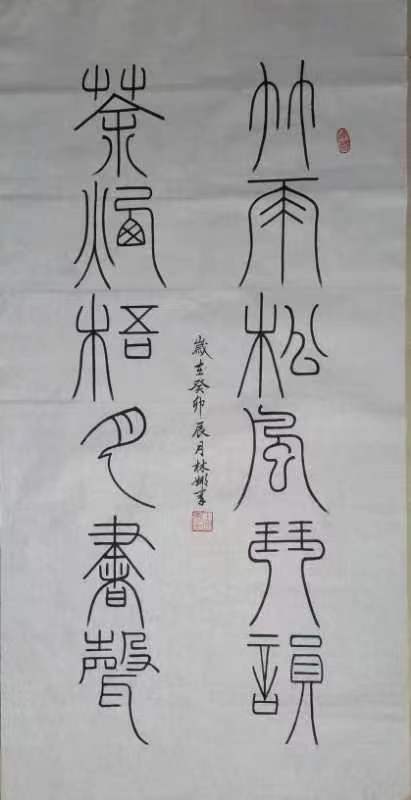 竹雨松風琴韻
茶煙梧月書聲
歲在癸卯辰月林